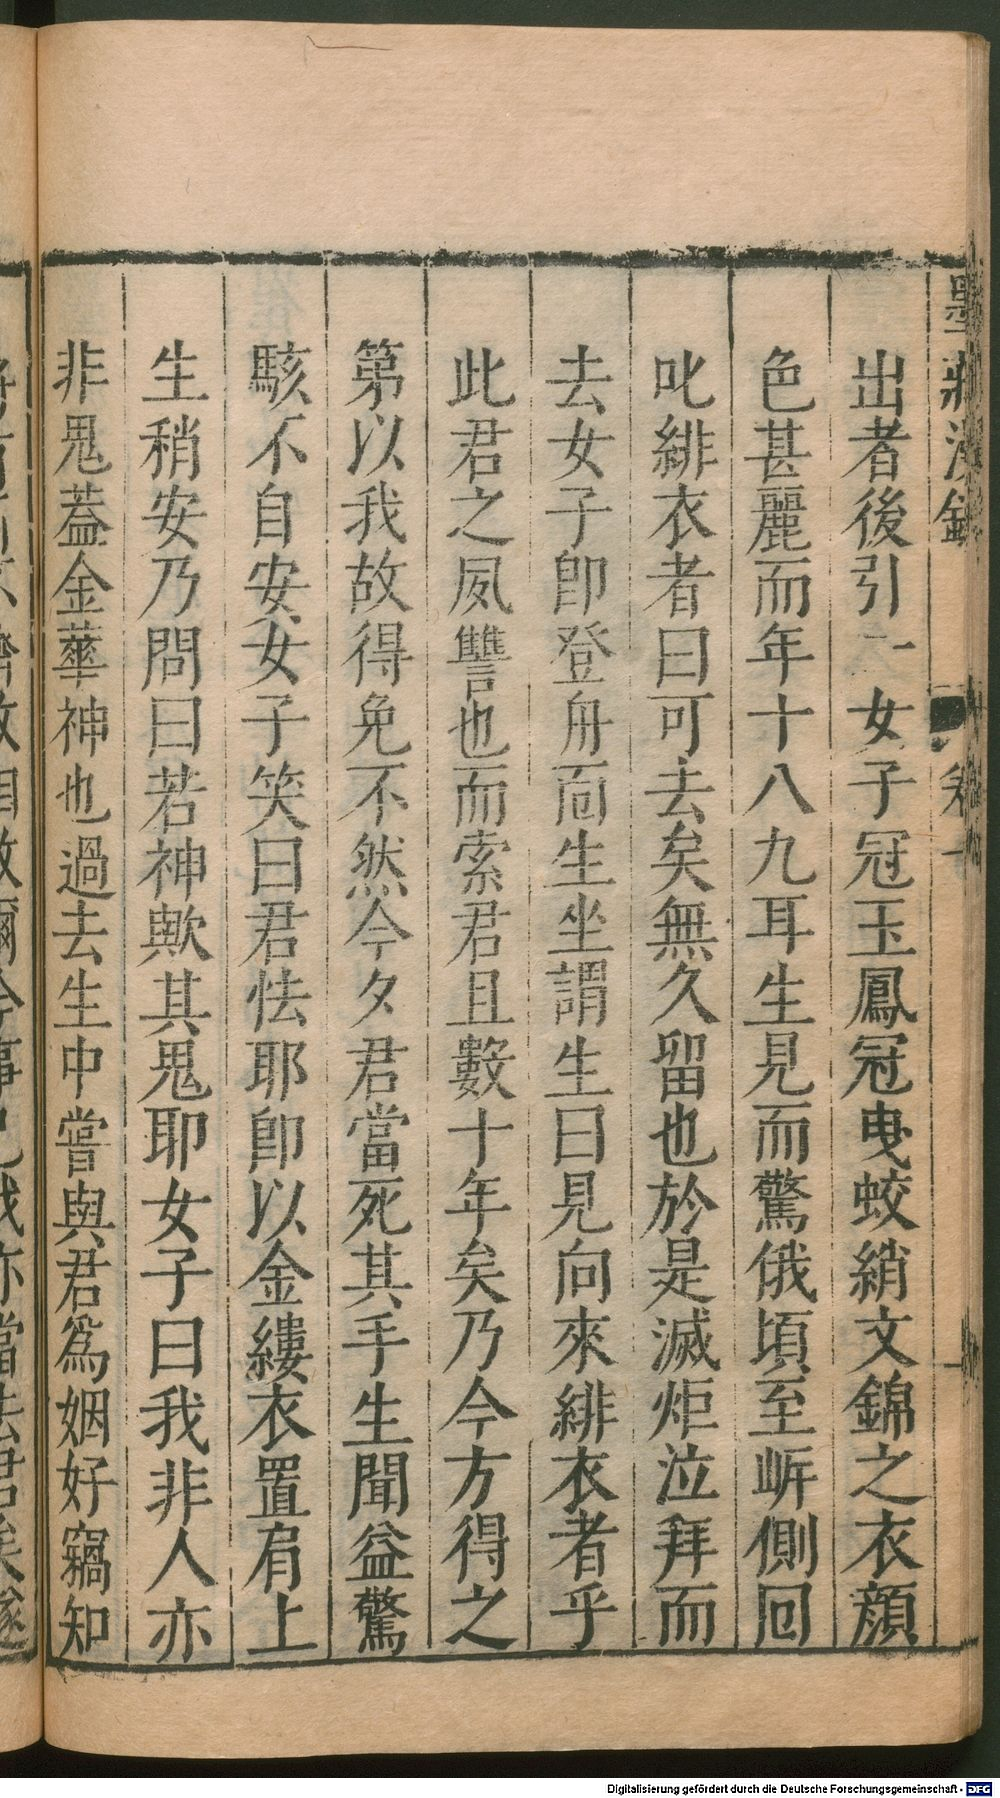 出者後引一女子冠玉鳳冠曳蛟綃文錦之衣顔
色甚麗而年十八九耳生見而驚俄頃至岍側回
叱緋衣者曰可去矣無久留也於是滅炬泣拜而
去女子卽登舟面生坐謂生曰見向來緋衣者乎
此君之夙讐也而索君且數十年矣乃今方得之
第以我故得免不然今夕君當死其手生聞益驚
駭不自安女子笑曰君怯耶卽以金縷衣置肩上
生稍安乃問曰若神歟其鬼耶女子曰我非人亦
非鬼葢金華神也過去生中嘗與君爲姻好竊知
Digitalisierung gefördert durch die Deutsche Forschungsgemeinschaft - DFG